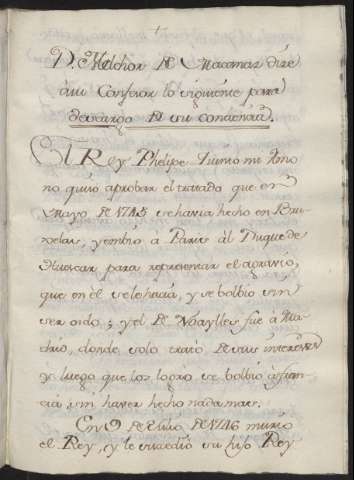 D.n Melchor de Macanaz dize
à su Confesor lo siguiente para
descargo de su conciencia.
El Rey Phelipe Quinto mi Amo
no quiso aprobar el tratado que en
Mayo de 1745 se havia hecho en Bru-
selas, y embio a Paris àl Duque de
Huescar para representar el agravio,
que en èl se le hacia, y se bolbio sin
ser oido; y el de Noaylles fue à Ma-
drid, donde solo trato de sus intereses
y luego que los logro se bolbio à Fran-
cia, sin haver hecho nada mas.
En 9 de Julio de 1746 murio
el Rey, y le sucedio su hijo Rey